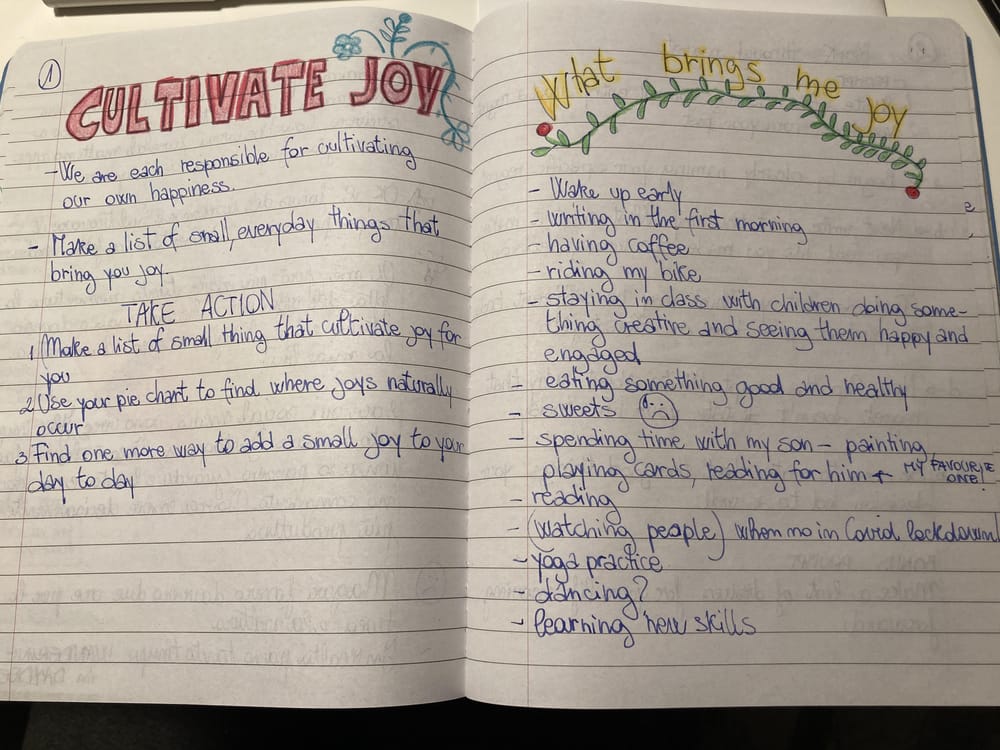 1
CULTIVATE JOY
- We are each responsible for cultivating
our own happiness.
- Make a list of small, everyday things that
bring you joy.
TAKE ACTION
1 Make a list of small thing that cultivate joy for
you
2 Use your pie chart to find where joys naturally
occur
3 Find one more way to add a small joy to your
day to day
What brings me joy
- Wake up early
- writing in the first morning
- having coffee
- riding my bike
- staying in class with children doing some-
thing creative and seeing them happy and
engaged
- eating something good and healthy
- sweets
- spending time with my son - painting,
playing cards, reading for him ← MY FAVOURITE
ONE!
- reading
- (watching people) when no in Covid lockdown
- yoga practice
- dancing?
- learning new skills